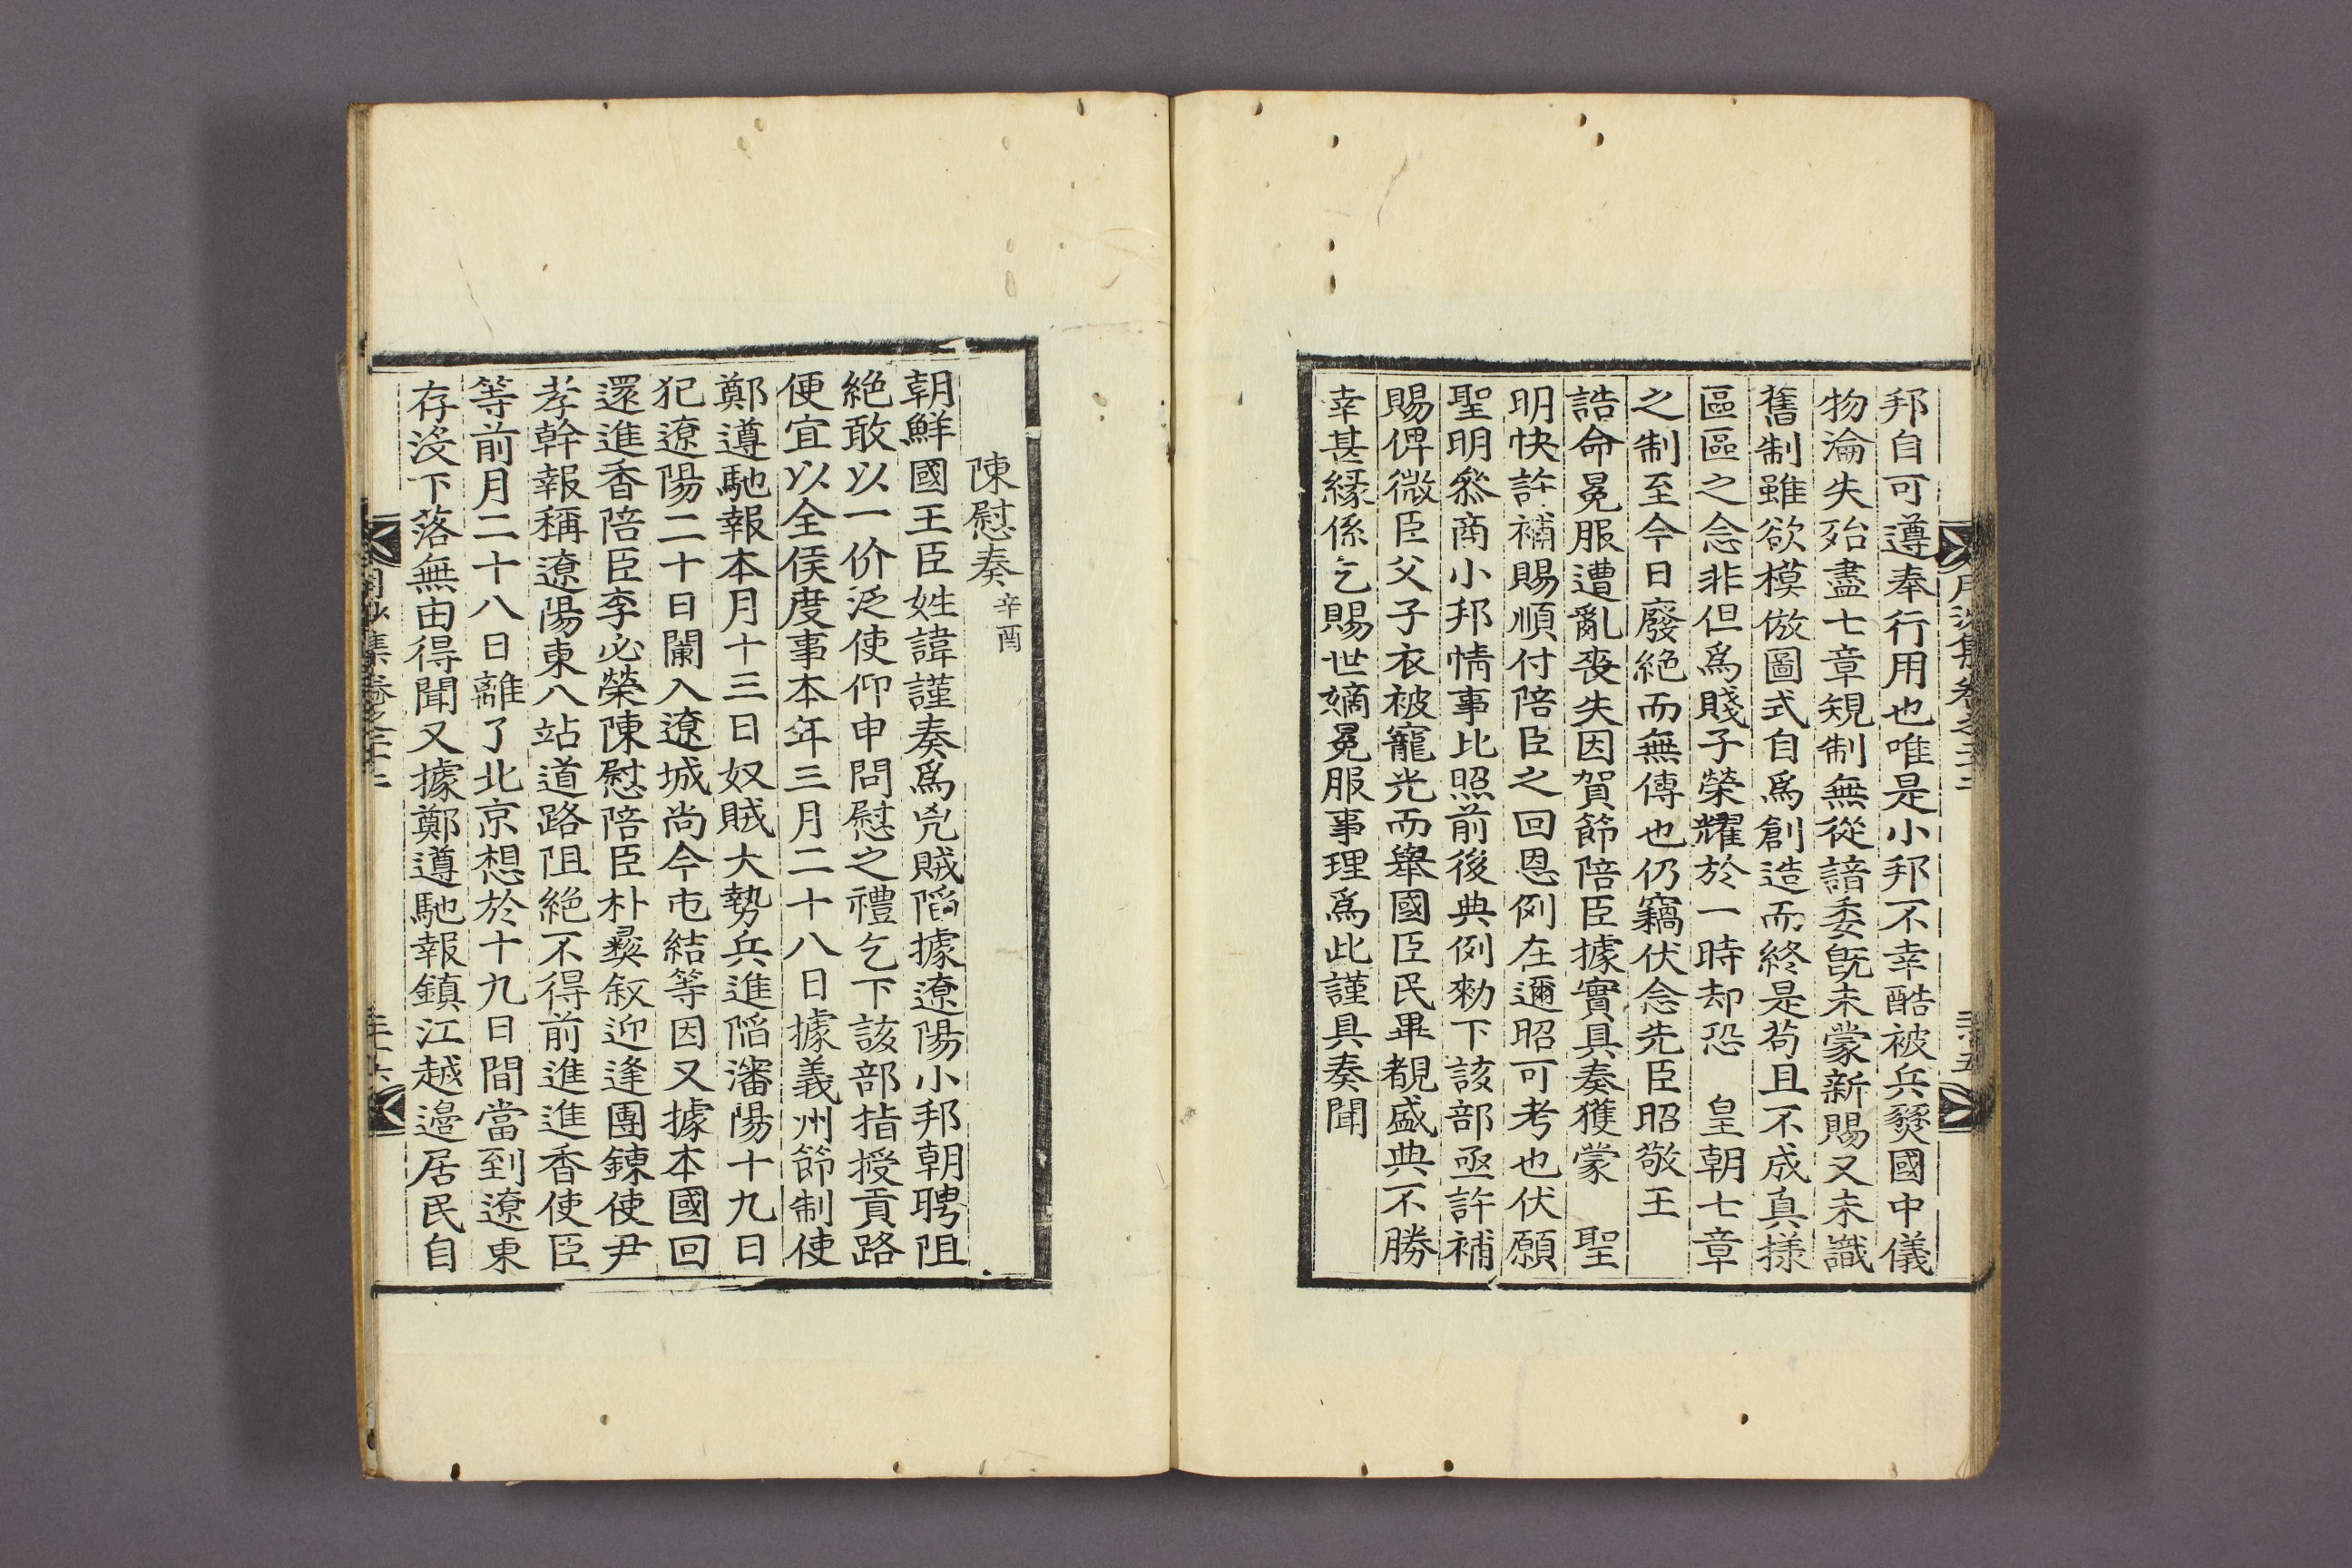 邦自可遵奉行用也唯是小邦不幸酷被兵燹國中儀
物淪失殆盡七章規制無從諳委旣未蒙新賜又未識
舊制雖欲模倣圖式自爲創造而終是苟且不成真㨾
區區之念非但爲賤子榮耀於一時却恐　皇朝七章
之制至今日廢絶而無傳也仍竊伏念先臣昭敬王
誥命冕服遭亂喪失因賀節陪臣據實具奏獲蒙　聖
明快許補賜順付陪臣之回恩例在邇昭可考也伏願
聖明叅商小邦情事比照前後典例勑下該部亟許補
賜俾微臣父子衣被寵光而舉國臣民畢覩盛典不勝
幸甚緣係乞賜世嫡冕服事理爲此謹具奏聞
陳慰奏辛酉
朝鮮國王臣姓諱謹奏爲兇賊䧟據遼陽小邦朝聘阻
絶敢以一价泛使仰申問慰之禮乞下該部指授貢路
便宜以全侯度事本年三月二十八日據義州節制使
鄭遵馳報本月十三日奴賊大勢兵進䧟瀋陽十九日
犯遼陽二十日闌入遼城尚今屯結等因又據本國回
還進香陪臣李必榮陳慰陪臣朴彝叙迎逢團鍊使尹
孝幹報稱遼陽東八站道路阻絶不得前進進香使臣
等前月二十八日離了北京想於十九日間當到遼東
存沒下落無由得聞又據鄭遵馳報鎮江越邊居民自